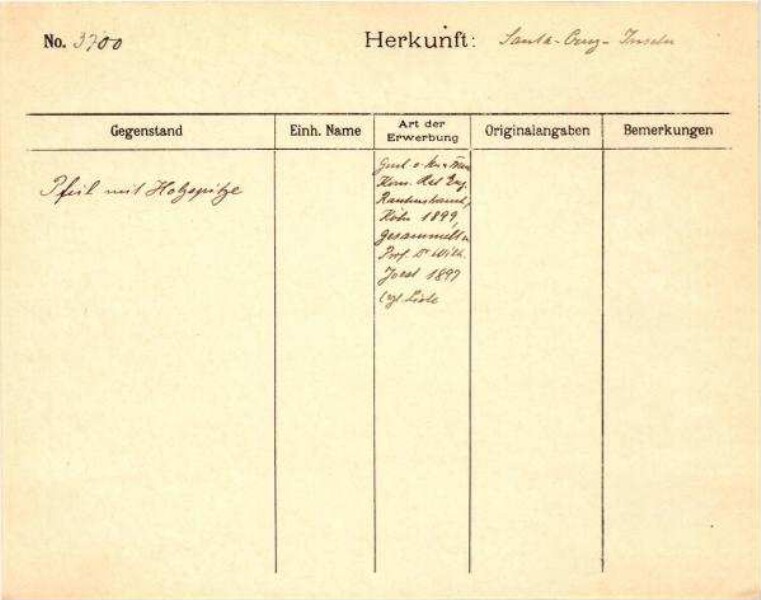 No. 3700
Herkunft: Santa-Cruz-Inseln
Gegenstand
Einh. Name
Art der Erwerbung
Originalangaben
Bemerkungen
Pfeil mit Holzspitze
Gesch. v. Hrn u. Frau
Kom. Rat Eug.
Rautenstrauch,
Köln 1899,
gesammelt v.
Prof. Dr Wilh.
Joest 1897
vgl. Liste